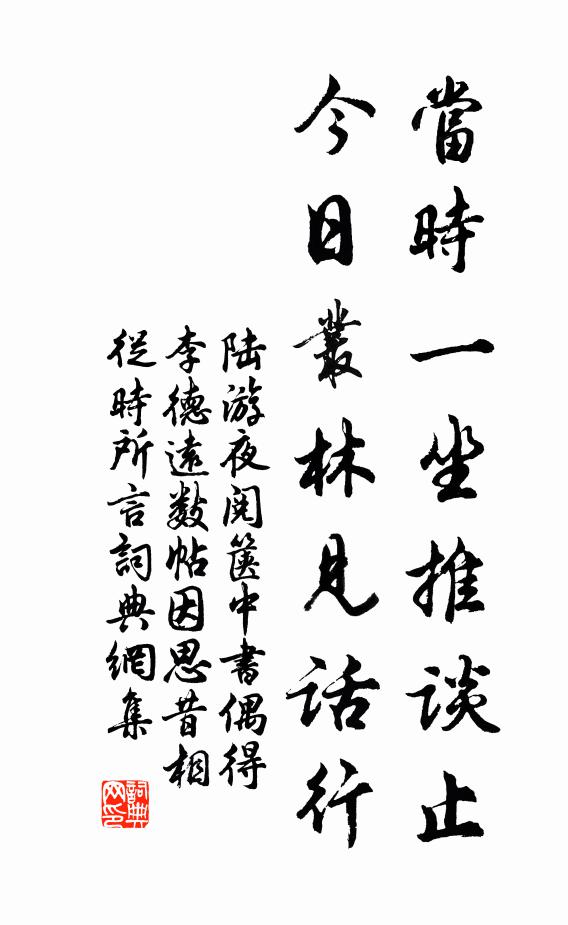 當時一坐推谈止
今日叢林見话行
陆游夜阅箧中書偶得
李德遠数帖因思昔相
従時所言詞典網集
詞典
网